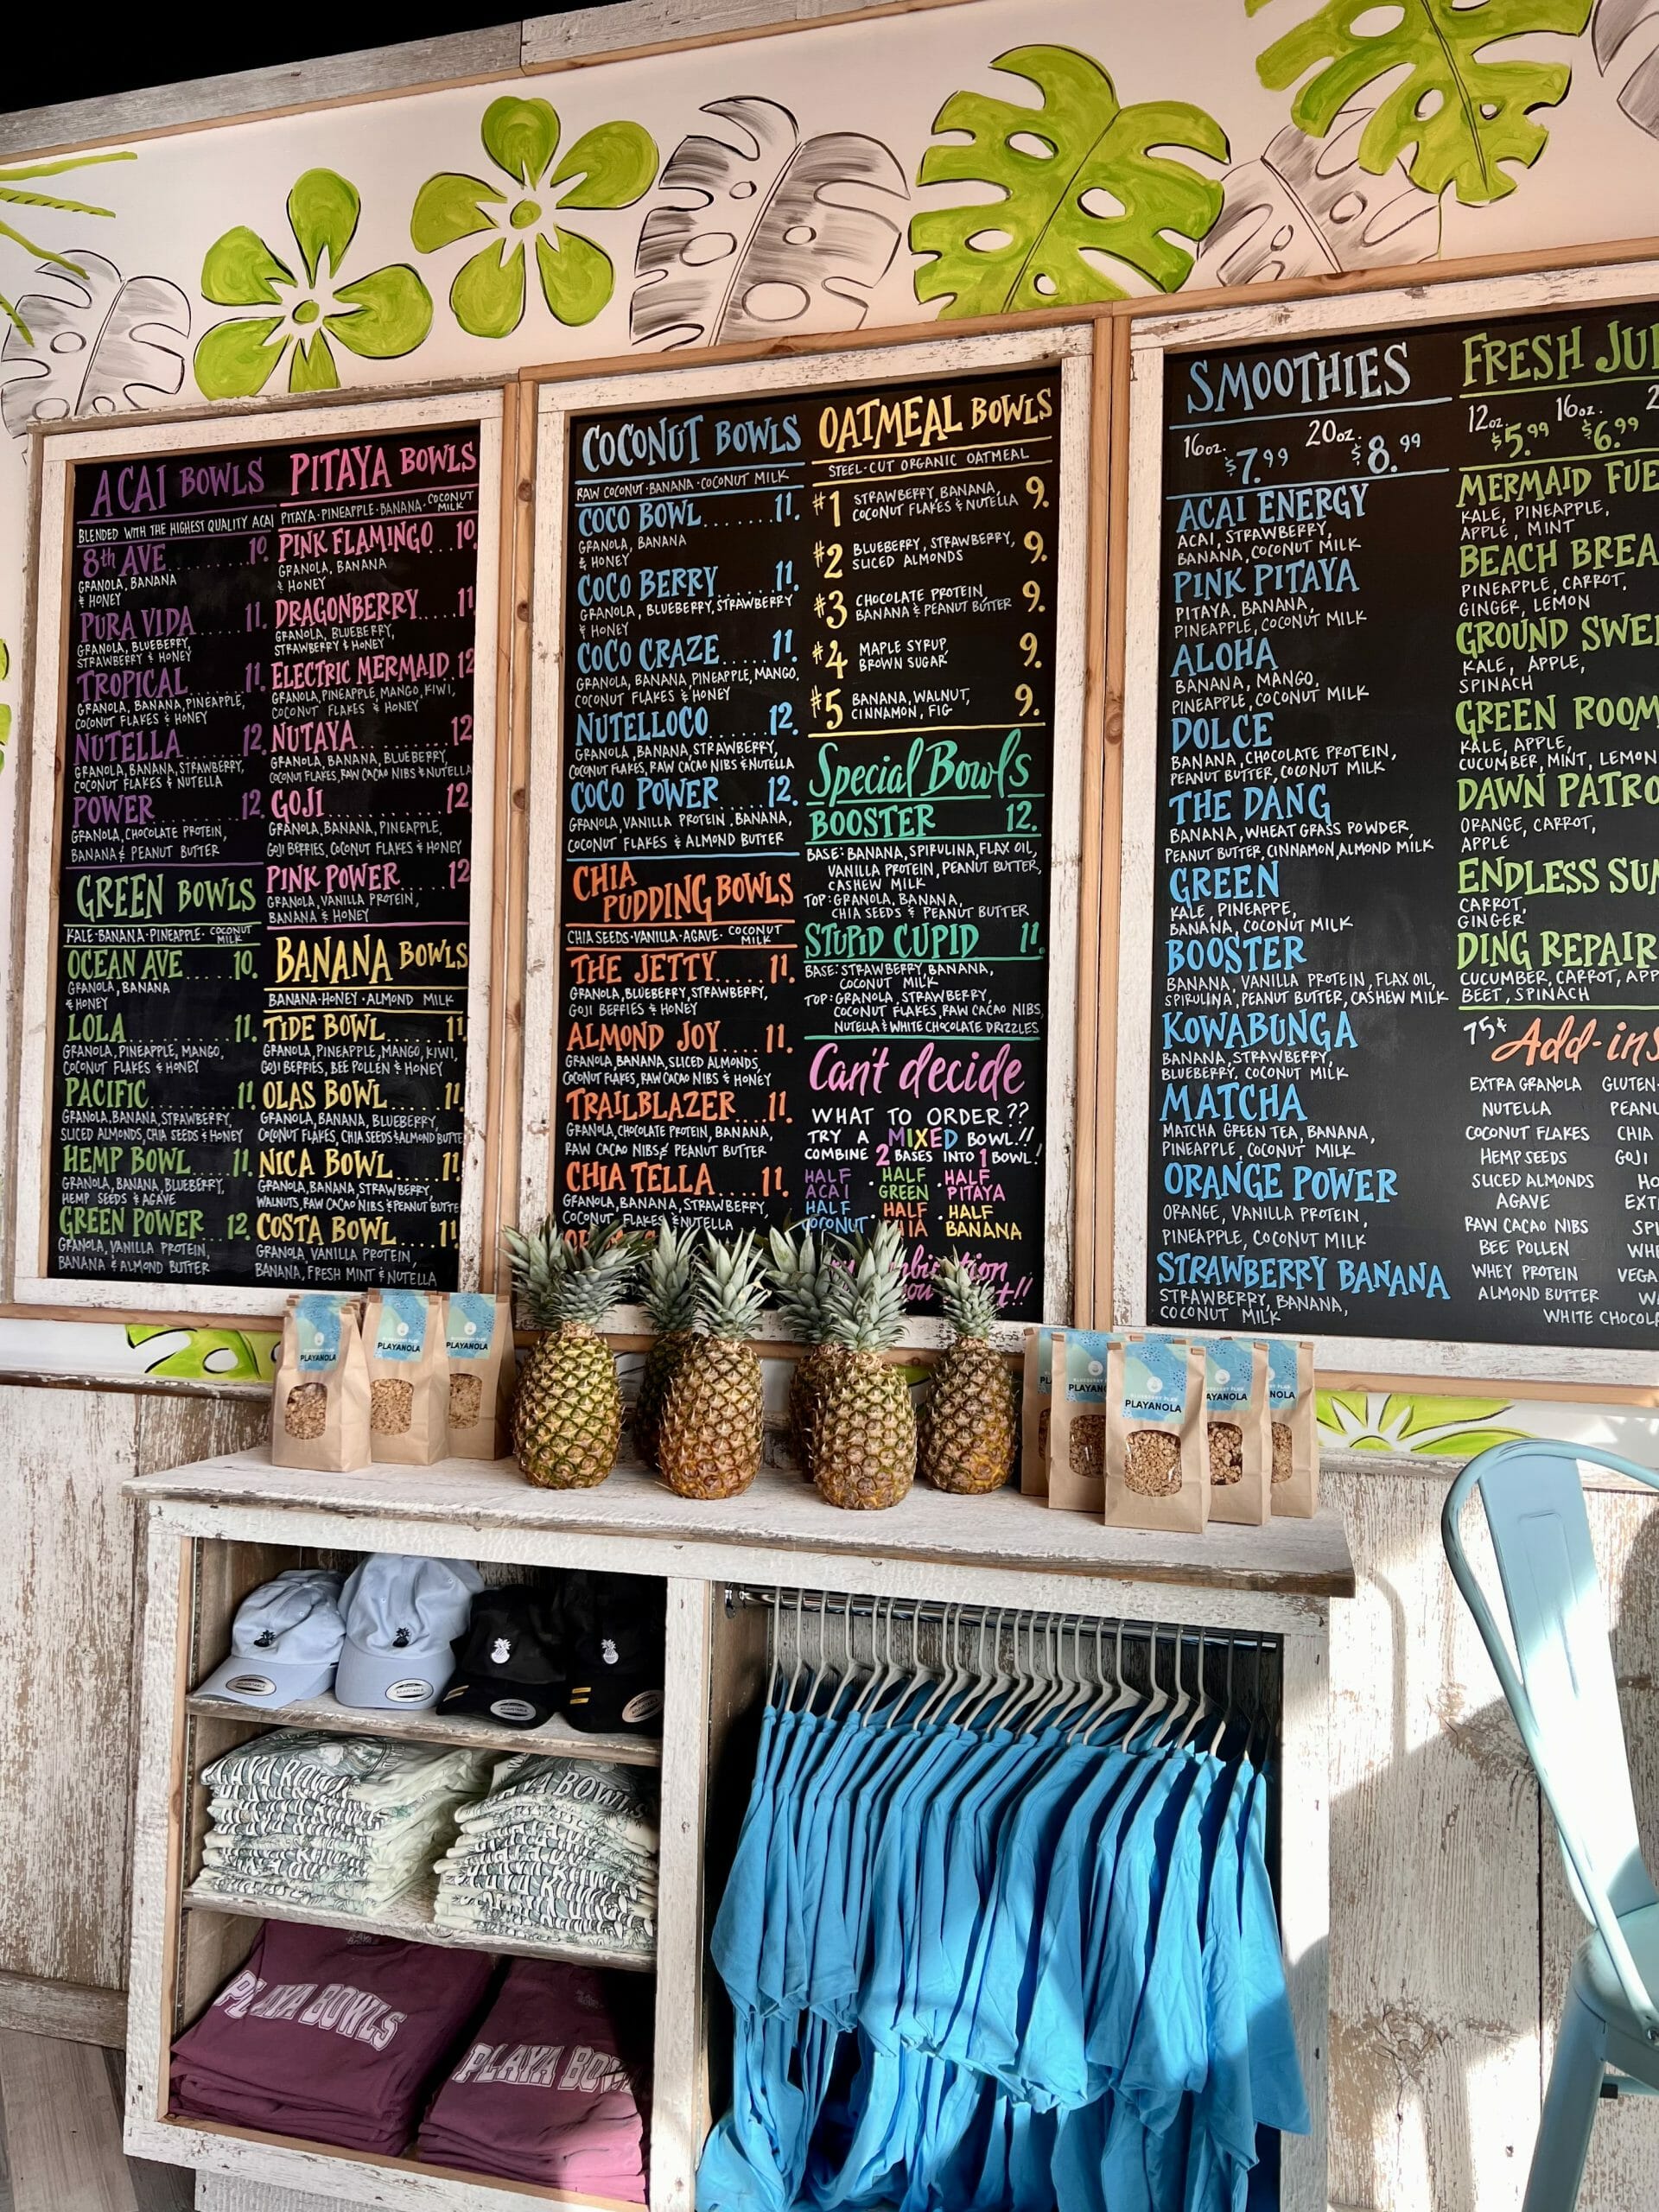 ACAI BOWLS
BLENDED WITH THE HIGHEST QUALITY ACAI
8th AVE......10.
GRANOLA, BANANA
& HONEY
PURA VIDA.....11.
GRANOLA, BLUEBERRY,
STRAWBERRY & HONEY
TROPICAL.....11.
GRANOLA, BANANA, PINEAPPLE,
COCONUT FLAKES & HONEY
NUTELLA.....12.
GRANOLA, BANANA, STRAWBERRY,
COCONUT FLAKES & NUTELLA
POWER.......12.
GRANOLA, CHOCOLATE PROTEIN,
BANANA & PEANUT BUTTER
GREEN BOWLS
KALE·BANANA·PINEAPPLE· COCONUT
MILK
OCEAN AVE.....10.
GRANOLA, BANANA
& HONEY
LOLA........11.
GRANOLA, PINEAPPLE, MANGO,
COCONUT FLAKES & HONEY
PACIFIC.......11.
GRANOLA, BANANA, STRAWBERRY,
SLICED ALMONDS, CHIA SEEDS & HONEY
HEMP BOWL....11.
GRANOLA, BANANA, BLUEBERRY,
HEMP SEEDS & AGAVE
GREEN POWER..12.
GRANOLA, VANILLA PROTEIN,
BANANA & ALMOND BUTTER
PITAYA BOWLS
PITAYA·PINEAPPLE·BANANA· COCONUT
MILK
PINK FLAMINGO...10.
GRANOLA, BANANA
& HONEY
DRAGONBERRY.....11
GRANOLA, BLUEBERRY,
STRAWBERRY & HONEY
ELECTRIC MERMAID 12
GRANOLA, PINEAPPLE, MANGO, KIWI,
COCONUT FLAKES & HONEY
NUTAYA.........12
GRANOLA, BANANA, BLUEBERRY,
COCONUT FLAKES, RAW CACAO NIBS & NUTELLA
GOJI..........12
GRANOLA, BANANA, PINEAPPLE,
GOJI BERRIES, COCONUT FLAKES & HONEY
PINK POWER.....12
GRANOLA, VANILLA PROTEIN,
BANANA & HONEY
BANANA BOWLS
BANANA·HONEY·ALMOND MILK
TIDE BOWL......11
GRANOLA, PINEAPPLE, MANGO, KIWI,
GOJI BERRIES, BEE POLLEN & HONEY
OLAS BOWL....11
GRANOLA, BANANA, BLUEBERRY,
COCONUT FLAKES, CHIA SEEDS & ALMOND BUTTE
NICA BOWL.....11
GRANOLA, BANANA, STRAWBERRY,
WALNUTS, RAW CACAO NIBS & PEANUT BUTTE
COSTA BOWL....11
GRANOLA, VANILLA PROTEIN,
BANANA, FRESH MINT & NUTELLA
COCONUT BOWLS
RAW COCONUT·BANANA·COCONUT MILK
COCO BOWL......11.
GRANOLA, BANANA
& HONEY
COCO BERRY.....11.
GRANOLA, BLUEBERRY, STRAWBERRY
& HONEY
COCO CRAZE.....11.
GRANOLA, BANANA, PINEAPPLE, MANGO,
COCONUT FLAKES & HONEY
NUTELLOCO.....12.
GRANOLA, BANANA, STRAWBERRY,
COCONUT FLAKES, RAW CACAO NIBS & NUTELLA
COCO POWER....12.
GRANOLA, VANILLA PROTEIN, BANANA,
COCONUT FLAKES & ALMOND BUTTER
CHIA
PUDDING BOWLS
CHIA SEEDS·VANILLA·AGAVE· COCONUT
MILK
THE JETTY.....11.
GRANOLA, BLUEBERRY, STRAWBERRY,
GOJI BERRIES & HONEY
ALMOND JOY....11.
GRANOLA, BANANA, SLICED ALMONDS,
COCONUT FLAKES, RAW CACAO NIBS & HONEY
TRAILBLAZER...11.
GRANOLA, CHOCOLATE PROTEIN, BANANA,
RAW CACAO NIBS & PEANUT BUTTER
CHIA TELLA....11.
GRANOLA, BANANA, STRAWBERRY,
COCONUT FLAKES & NUTELLA
OATMEAL BOWLS
STEEL-CUT ORGANIC OATMEAL
#1 STRAWBERRY, BANANA, 9.
COCONUT FLAKES & NUTELLA
#2 BLUEBERRY, STRAWBERRY, 9.
SLICED ALMONDS
#3 CHOCOLATE PROTEIN, 9.
BANANA & PEANUT BUTTER
#4 MAPLE SYRUP, 9.
BROWN SUGAR
#5 BANANA, WALNUT, 9.
CINNAMON, FIG
Special Bowls
BOOSTER 12.
BASE: BANANA, SPIRULINA, FLAX OIL,
VANILLA PROTEIN, PEANUT BUTTER,
CASHEW MILK
TOP: GRANOLA, BANANA,
CHIA SEEDS & PEANUT BUTTER
STUPID CUPID 11.
BASE: STRAWBERRY, BANANA,
COCONUT MILK
TOP: GRANOLA, STRAWBERRY,
COCONUT FLAKES, RAW CACAO NIBS,
NUTELLA & WHITE CHOCOLATE DRIZZLES
Can't decide
WHAT TO ORDER??
TRY A MIXED BOWL!!
COMBINE 2 BASES INTO 1 BOWL!
HALF · HALF · HALF
ACAI · GREEN · PITAYA
HALF HALF HALF
COCONUT BANANA
SMOOTHIES
16oz. $7.99 20oz. $8.99
ACAI ENERGY
ACAI, STRAWBERRY,
BANANA, COCONUT MILK
PINK PITAYA
PITAYA, BANANA,
PINEAPPLE, COCONUT MILK
ALOHA
BANANA, MANGO,
PINEAPPLE, COCONUT MILK
DOLCE
BANANA, CHOCOLATE PROTEIN,
PEANUT BUTTER, COCONUT MILK
THE DANG
BANANA, WHEAT GRASS POWDER,
PEANUT BUTTER, CINNAMON, ALMOND MILK
GREEN
KALE, PINEAPPE,
BANANA, COCONUT MILK
BOOSTER
BANANA, VANILLA PROTEIN, FLAX OIL,
SPIRULINA, PEANUT BUTTER, CASHEW MILK
KOWABUNGA
BANANA, STRAWBERRY,
BLUEBERRY, COCONUT MILK
MATCHA
MATCHA GREEN TEA, BANANA,
PINEAPPLE, COCONUT MILK
ORANGE POWER
ORANGE, VANILLA PROTEIN,
PINEAPPLE, COCONUT MILK
STRAWBERRY BANANA
STRAWBERRY, BANANA,
COCONUT MILK
FRESH JUI
12oz. $5.99 16oz. $6.99 2
MERMAID FUE
KALE, PINEAPPLE,
APPLE, MINT
BEACH BREA
PINEAPPLE, CARROT,
GINGER, LEMON
GROUND SWEL
KALE, APPLE,
SPINACH
GREEN ROOM
KALE, APPLE,
CUCUMBER, MINT, LEMON
DAWN PATRO
ORANGE, CARROT,
APPLE
ENDLESS SUM
CARROT,
GINGER
DING REPAIR
CUCUMBER, CARROT, APP
BEET, SPINACH
75¢ Add-ins
EXTRA GRANOLA GLUTEN-
NUTELLA PEANU
COCONUT FLAKES CHIA
HEMP SEEDS GOJI
SLICED ALMONDS HO
AGAVE EXT
RAW CACAO NIBS SPI
BEE POLLEN WHE
WHEY PROTEIN VEGA
ALMOND BUTTER WA
WHITE CHOCOLA
PLAYANOLA
PLAYANOLA
PLAYANOLA
PLAYANOLA
PLAYA BOWLS
PLAYA BOW